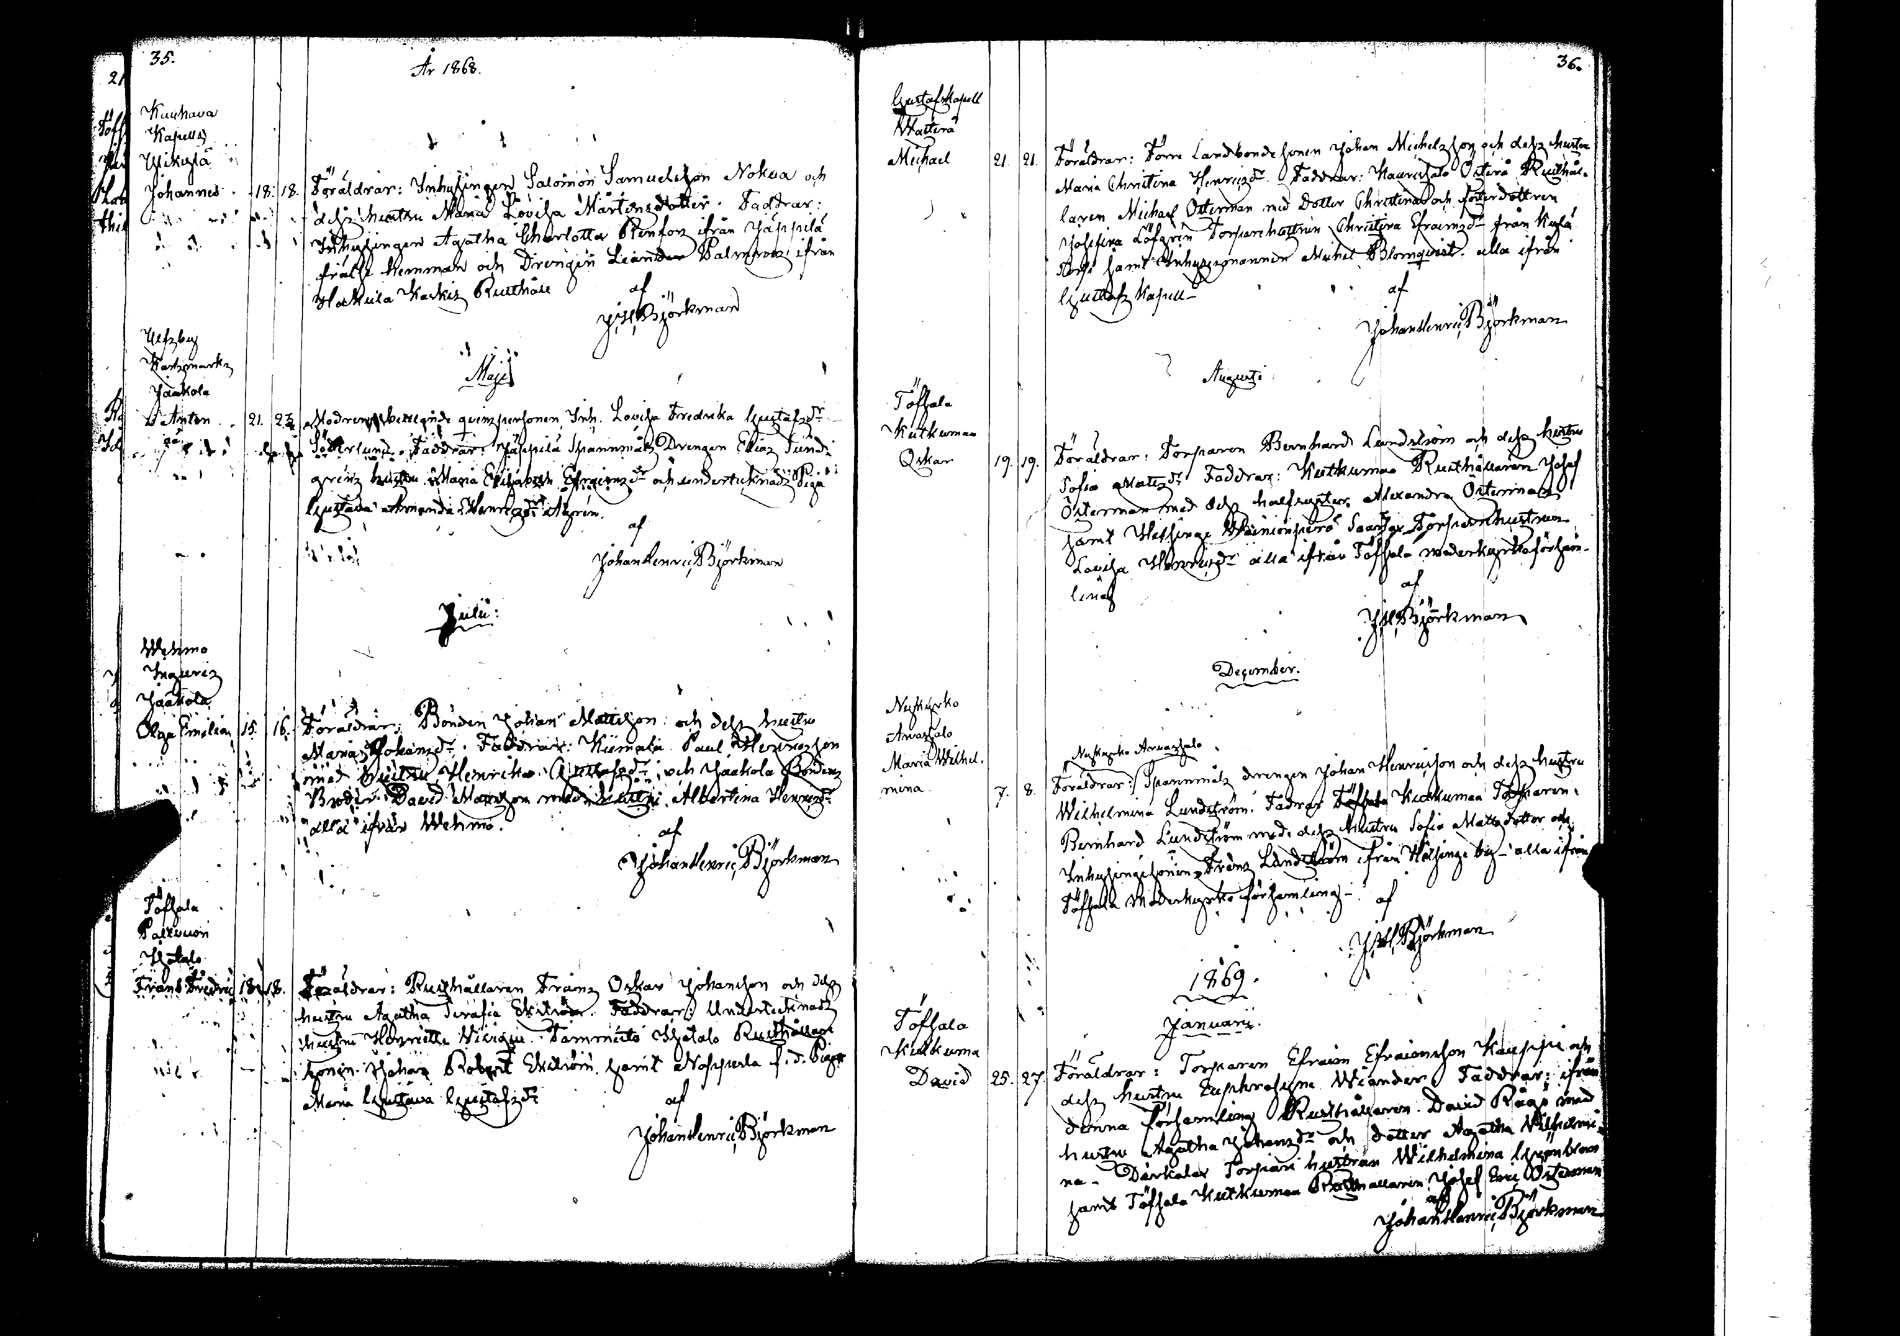 35.
År 1868.
Kuuhava
Kapells
Ylikylä
Johannes 18. 18. Föräldrar: Inhysingen Salomon Samuelsson Nokua och
dess hustru Maria Lovisa Mårtensdotter. Faddrar:
Inhysingen Agatha Charlotta Renfors ifrån Jäppilä
frälse hemman och Drengen Leander Palmroos ifrån
Hakula Karkis Rusthåll
af
J. H. Björkman
Maji
Karhmarks
Jaakola
Anton 21. Modren, berygtade qvinspersonen Inh. Lovisa Fredrika Gustafsdr
Söderlund. Faddrar: Jäppilä Spannmåls Drengen Elias Sund-
gréns hustru Maria Elisabeth Efraimsdr och undertecknads Piga
Gustava Amanda Henricsdr Ahgrén.
af
Johan Henric Björkman
Julii:
Wehmo
Ingueris
Jaakola
Olga Emilia, 15. 16. Föräldrar: Bonden Johan Mattsson och dess hustru
Maria Johansdr. Faddrar: Kiimala Paul Henricsson
med hustru Henrika Gustafsdr och Jaakola Bondens
Broder David Mattsson med hustru Albertina Henricsdr
alla ifrån Wehmo.
af
Johan Henric Björkman
Töfsala
Palluion
Ylotalo
Frans Fredric 18. 18. Föräldrar: Rusthållaren Frans Oskar Johansson och dess
hustru Agatha Serafia Ekström. Faddrar: Undertecknads
hustru Henriette, Tammisto Ylotalo Rusthållare
sonen Johan Robert Ekström samt Nopperla f.d. Pigan
Maria Gustava Gustafsdr
af
Johan Henric Björkman
36.
Gustafs Kapell
Wartsra
Michael 21. 21. Föräldrar: Förre Landbondesonen Johan Michelsson och dess hustru
Maria Christina Henricsdr. Faddrar: Kaurisalo Österå Rusthål-
laren Michael Österman med dotter Christina och fosterdottren
Josefina Löfgrén Torparehustrun Christina Efraimsdr från Kylä
samt Inhysesmannen Michel Blomqvist. alla ifrån
Gustafs Kapell
af
Johan Henric Björkman
Augusti
Töfsala
Kutkumaa
Oskar 19. 19. Föräldrar: Torparen Bernhard Lundström och dess hustru
Sofia Matsdr Faddrar: Kutkumaa Rusthållaren Josef
Österman med dess halfsyster Alexandra Österman
samt Helsinge Wäinionperä Torparehustrun
Lovisa Henricsdr alla ifrån Töfsala moderkyrkoförsam-
ling
af
J. H. Björkman
December.
Nykyrko
Arvassalo
Maria Wilhel-
mina 7. 8. Nykyrko Arvassalo
Föräldrar: Spannmåls drengen Johan Henricsson och dess hustru
Wilhelmina Lundström. Fadrar Töfsala Kutkumaa Torparen
Bernhard Lundström med dess hustru Sofia Mattsdotter och
Inhysingesonen Frans Lundström ifrån Helsinge by - alla ifrån
Töfsala Moderkyrko församling -
af
J. H. Björkman
1869.
Januarii.
Töfsala
Kutkuma
David 25. 27. Föräldrar: Torparen Efraim Efraimsson Kauppi och
dess hustru Euphrosyne Wiander. Faddrar: ifrån
denna församling Rusthållaren David Rågö med
hustru Agatha Johansdr och dotter Agatha Wilhelmi-
na - Torpare hustrun Wilhelmina Grönblom
samt Töfsala Kutkumaa Rusthållaren Josef Eric Österman
af
Johan Henric Björkman